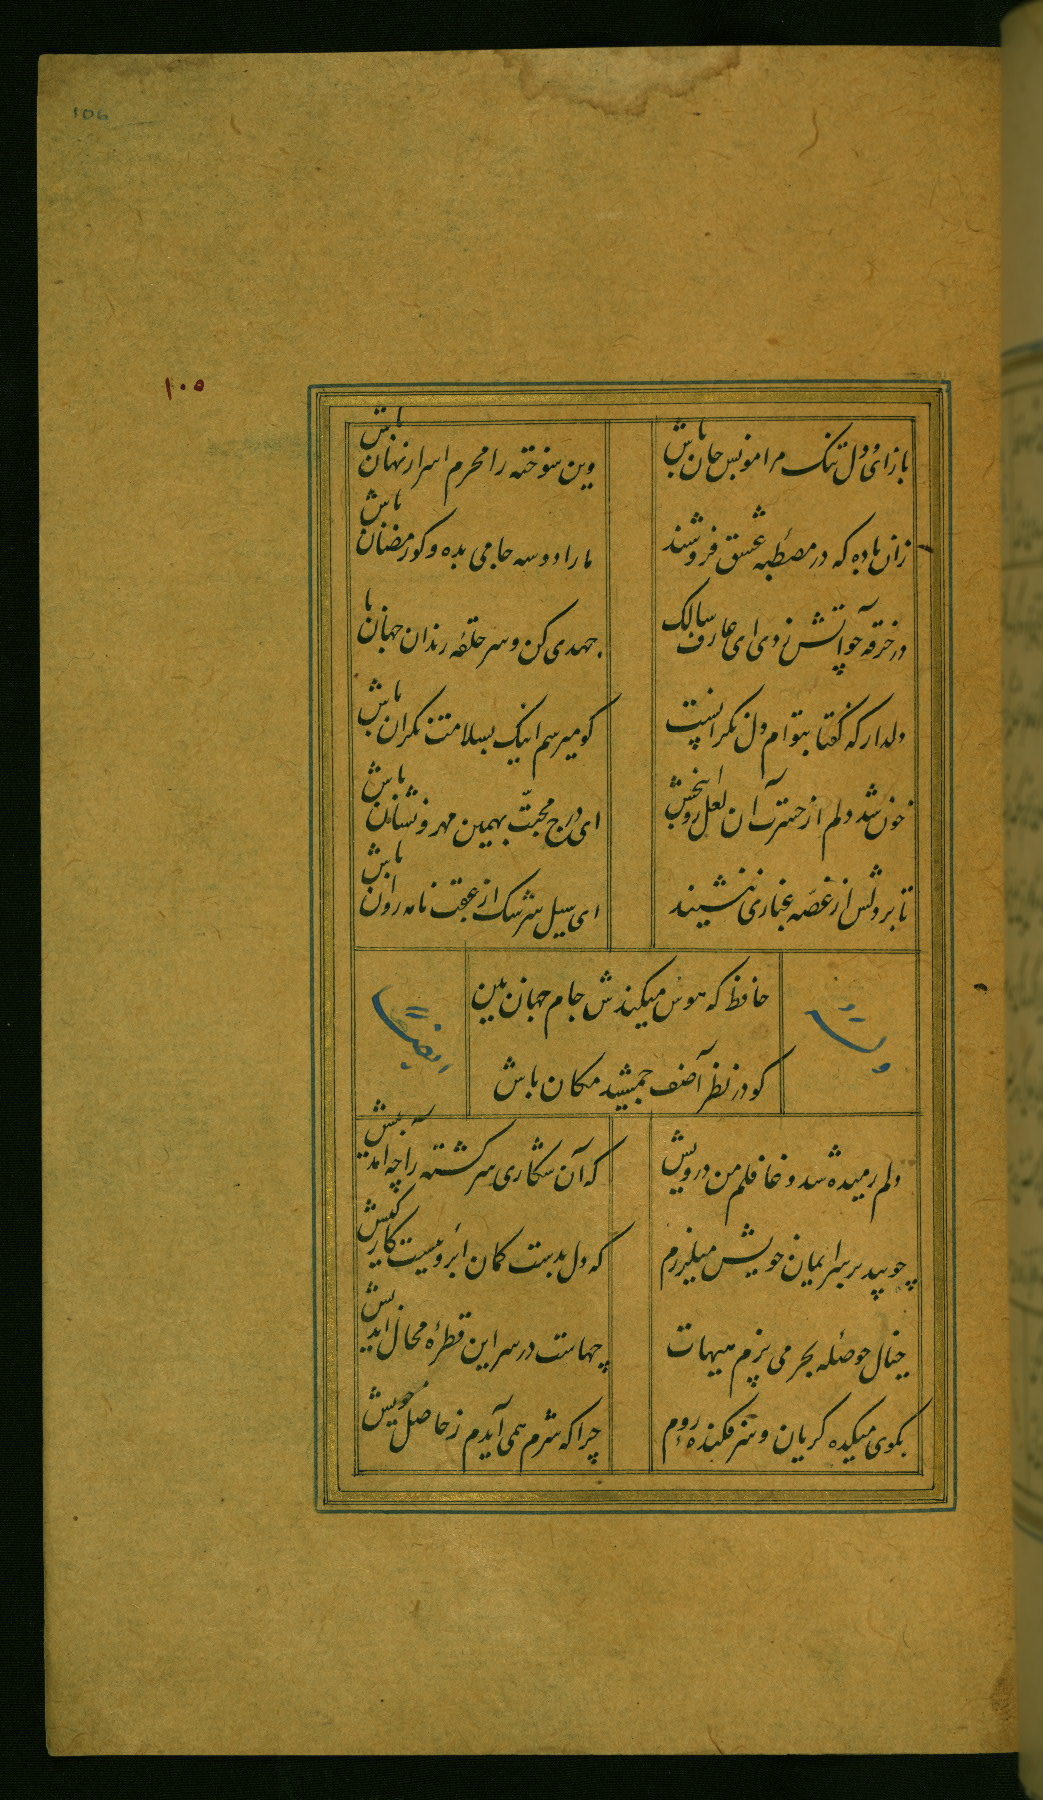 106
۱۰۵
باز ای و دل تنک مرا مونس جان باش
وین سوخته را محرم اسرار نهان باش
زان باده که در مصطبه عشق فروشند
ما را دو سه جامی بده و کو رمضان باش
در خرقه چو آتش زدی ای عارف سالک
جهدی کن و سر حلقه رندان جهان با
دلدار که گفتا بتوام دل نکرانست
کو میرسم اینک بسلامت نکران باش
خون شد دلم از حسرت آن لعل روانبخش
ای درج محبّت بهمین مهر و نشان باش
تا بر دلش از غصه غباری ننشیند
ای سیل سرشک از عقب نامه روان باش
حافظ که هوس میکندش جام جهان بین
کو در نظر آصف جمشید مکان باش
وله
ایضاً
دلم رمیده شد و غافلم من درویش
که آن شکاری سرکشته را چه آمد بیش
چو بید بر سر ایمان خویش میلرزم
که دل بدست کمان ابرویست کافر کیش
خیال حوصله بحر می پزم هیهات
چهاست در سر این قطرهٔ محال اندیش
بکوی میکده کریان و سر فکنده روم
چرا که شرم همی آیدم ز حاصل خویش